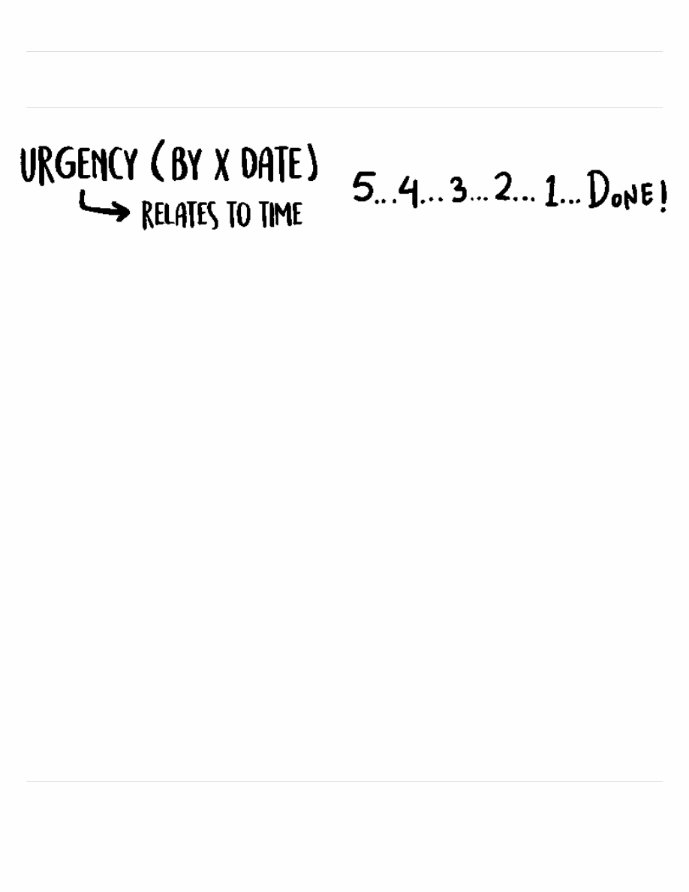 URGENCY (BY X DATE)
RELATES TO TIME
5...4...3...2...1...DONE!